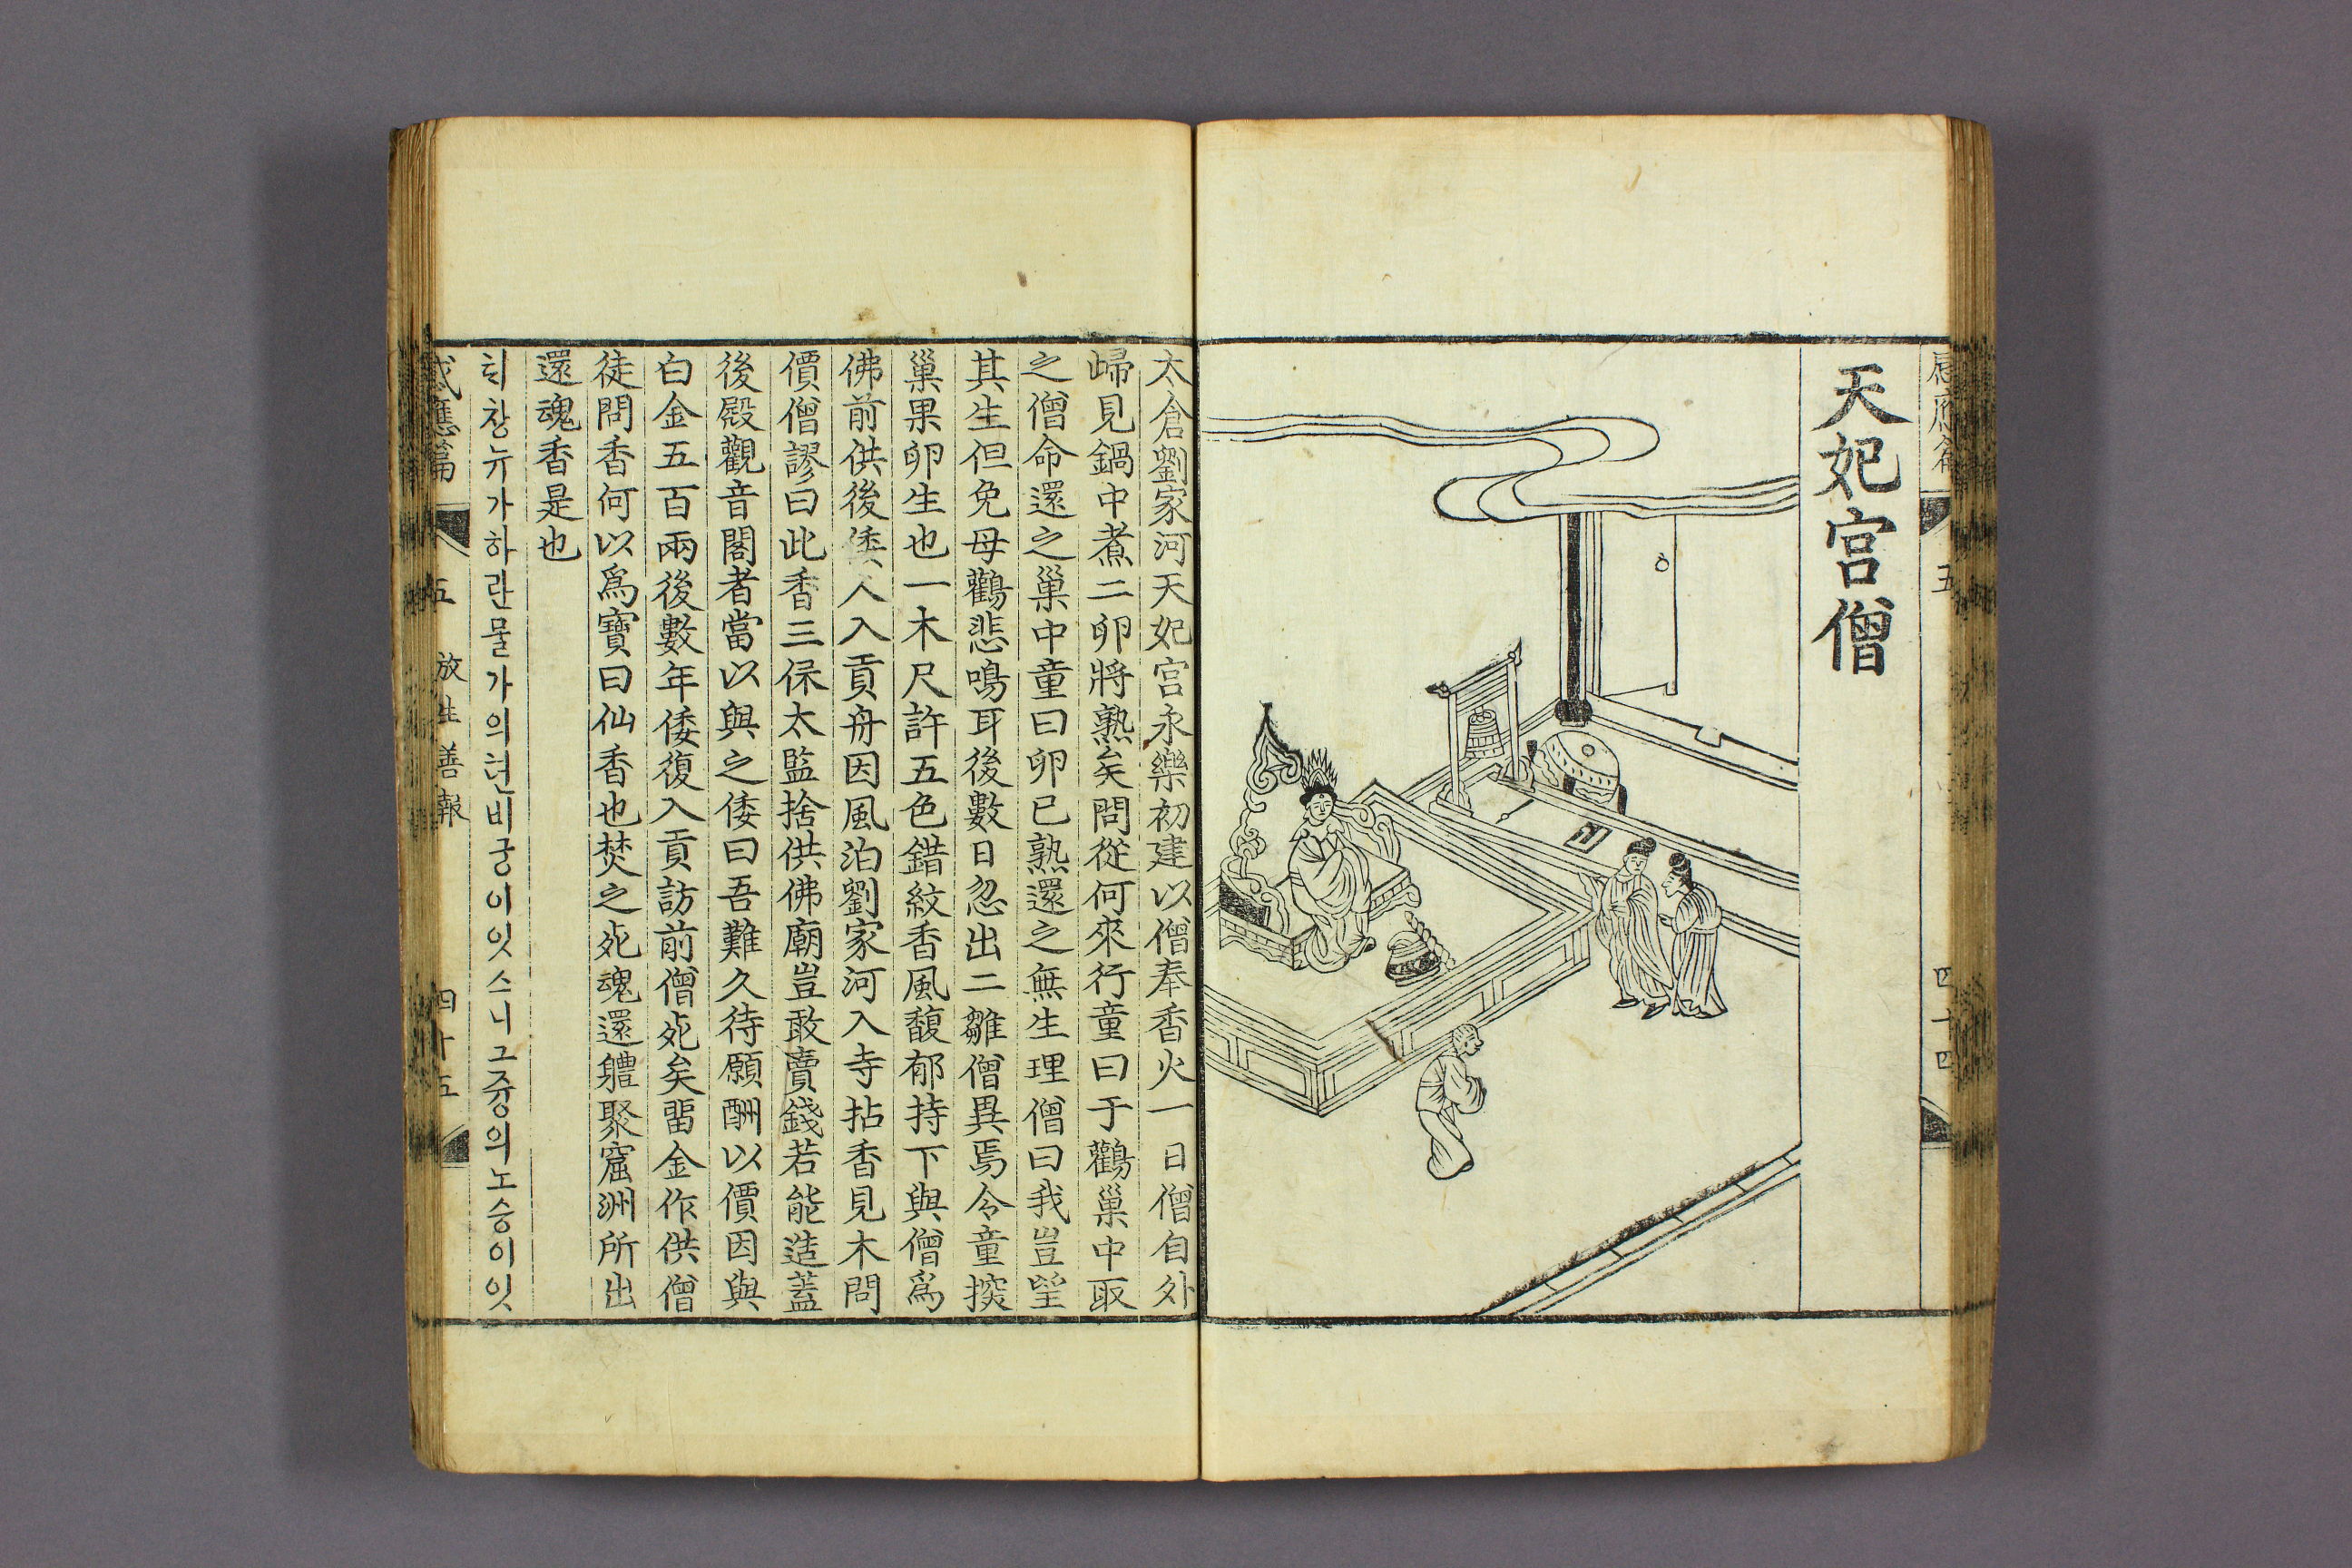 天妃宮僧
太倉劉家河天妃宮永樂初建以僧奉香火一日僧自外
歸見鍋中煮二卵將熟矣問從何來行童曰于鸛巢中取
之僧命還之巢中童曰卵已熟還之無生理僧曰我豈望
其生但免母鸛悲鳴耳後數日忽出二雛僧異焉令童探
巢果卵生也一木尺許五色錯紋香風馥郁持下與僧爲
佛前供後倭人入貢舟因風泊劉家河入寺拈香見木問
價僧謬曰此香三保太監捨供佛廟豈敢賣錢若能造蓋
後殿觀音閣者當以與之倭曰吾難久待願酬以價因與
白金五百兩後數年倭復入貢訪前僧死矣畱金作供僧
徒問香何以爲寶曰仙香也焚之死魂還軆聚窟洲所出
還魂香是也
틱창뉴가하란물가의텬비궁이잇스니그즁의노승이잇
感應篇 五 放生善報 四十五
感應篇 五 四十四